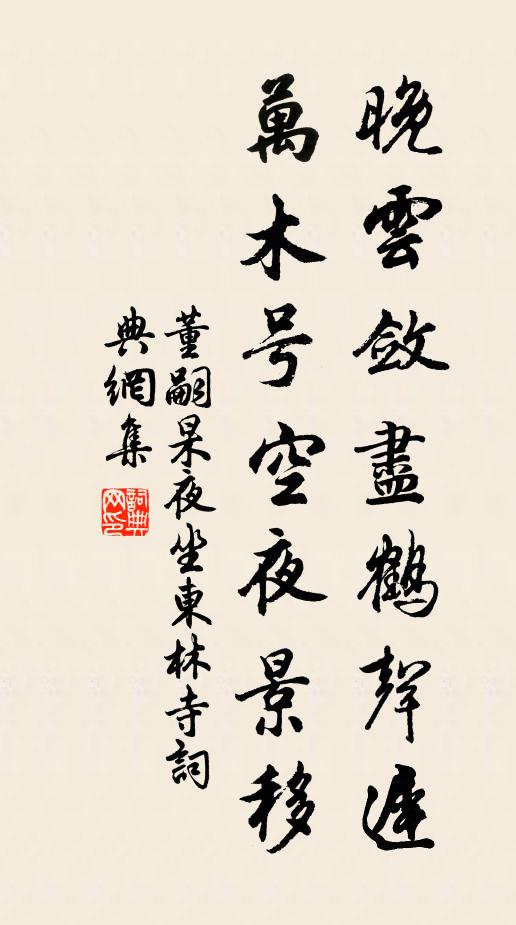 晚雲斂盡鶴聲遲
萬木号空夜景移
董嗣杲夜坐東林寺詞
典網集
詞典網印